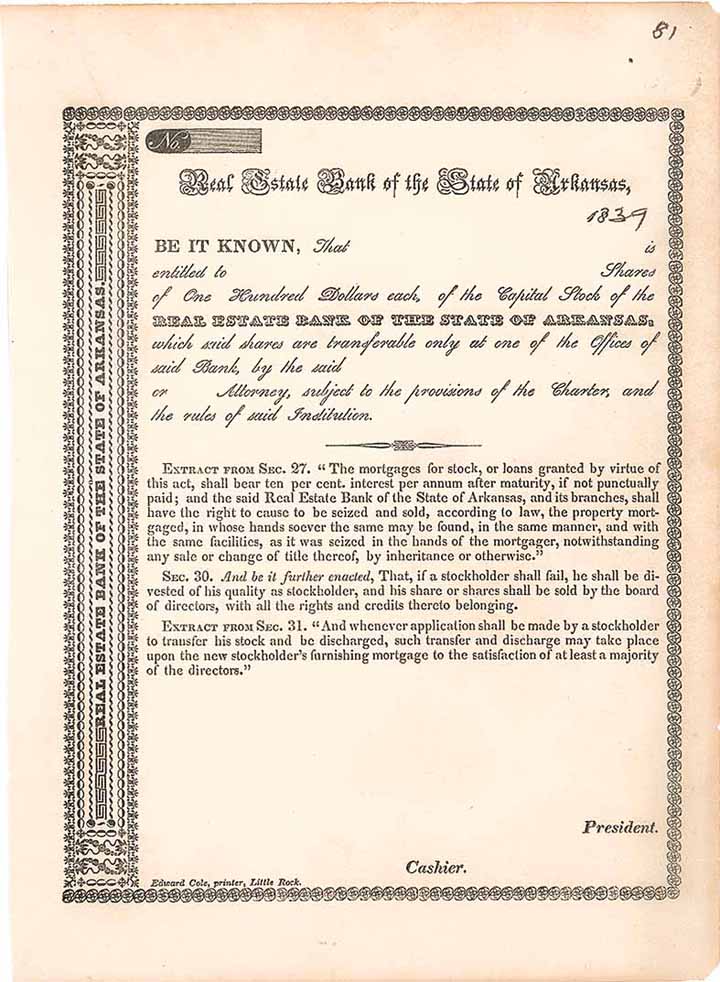 81
No
Real Estate Bank of the State of Arkansas,
1839
BE IT KNOWN, That is
entitled to Shares
of One Hundred Dollars each, of the Capital Stock of the
REAL ESTATE BANK OF THE STATE OF ARKANSAS,
which said shares are transferable only at one of the Offices of
said Bank, by the said
or Attorney, subject to the provisions of the Charter, and
the rules of said Institution.
EXTRACT FROM SEC. 27. “The mortgages for stock, or loans granted by virtue of
this act, shall bear ten per cent. interest per annum after maturity, if not punctually
paid; and the said Real Estate Bank of the State of Arkansas, and its branches, shall
have the right to cause to be seized and sold, according to law, the property mort-
gaged, in whose hands soever the same may be found, in the same manner, and with
the same facilities, as it was seized in the hands of the mortgager, notwithstanding
any sale or change of title thereof, by inheritance or otherwise.”
SEC. 30. And be it further enacted, That, if a stockholder shall fail, he shall be di-
vested of his quality as stockholder, and his share or shares shall be sold by the board
of directors, with all the rights and credits thereto belonging.
EXTRACT FROM SEC. 31. “And whenever application shall be made by a stockholder
to transfer his stock and be discharged, such transfer and discharge may take place
upon the new stockholder's furnishing mortgage to the satisfaction of at least a majority
of the directors.”
President.
Cashier.
Edward Cole, printer, Little Rock.
REAL ESTATE BANK OF THE STATE OF ARKANSAS.